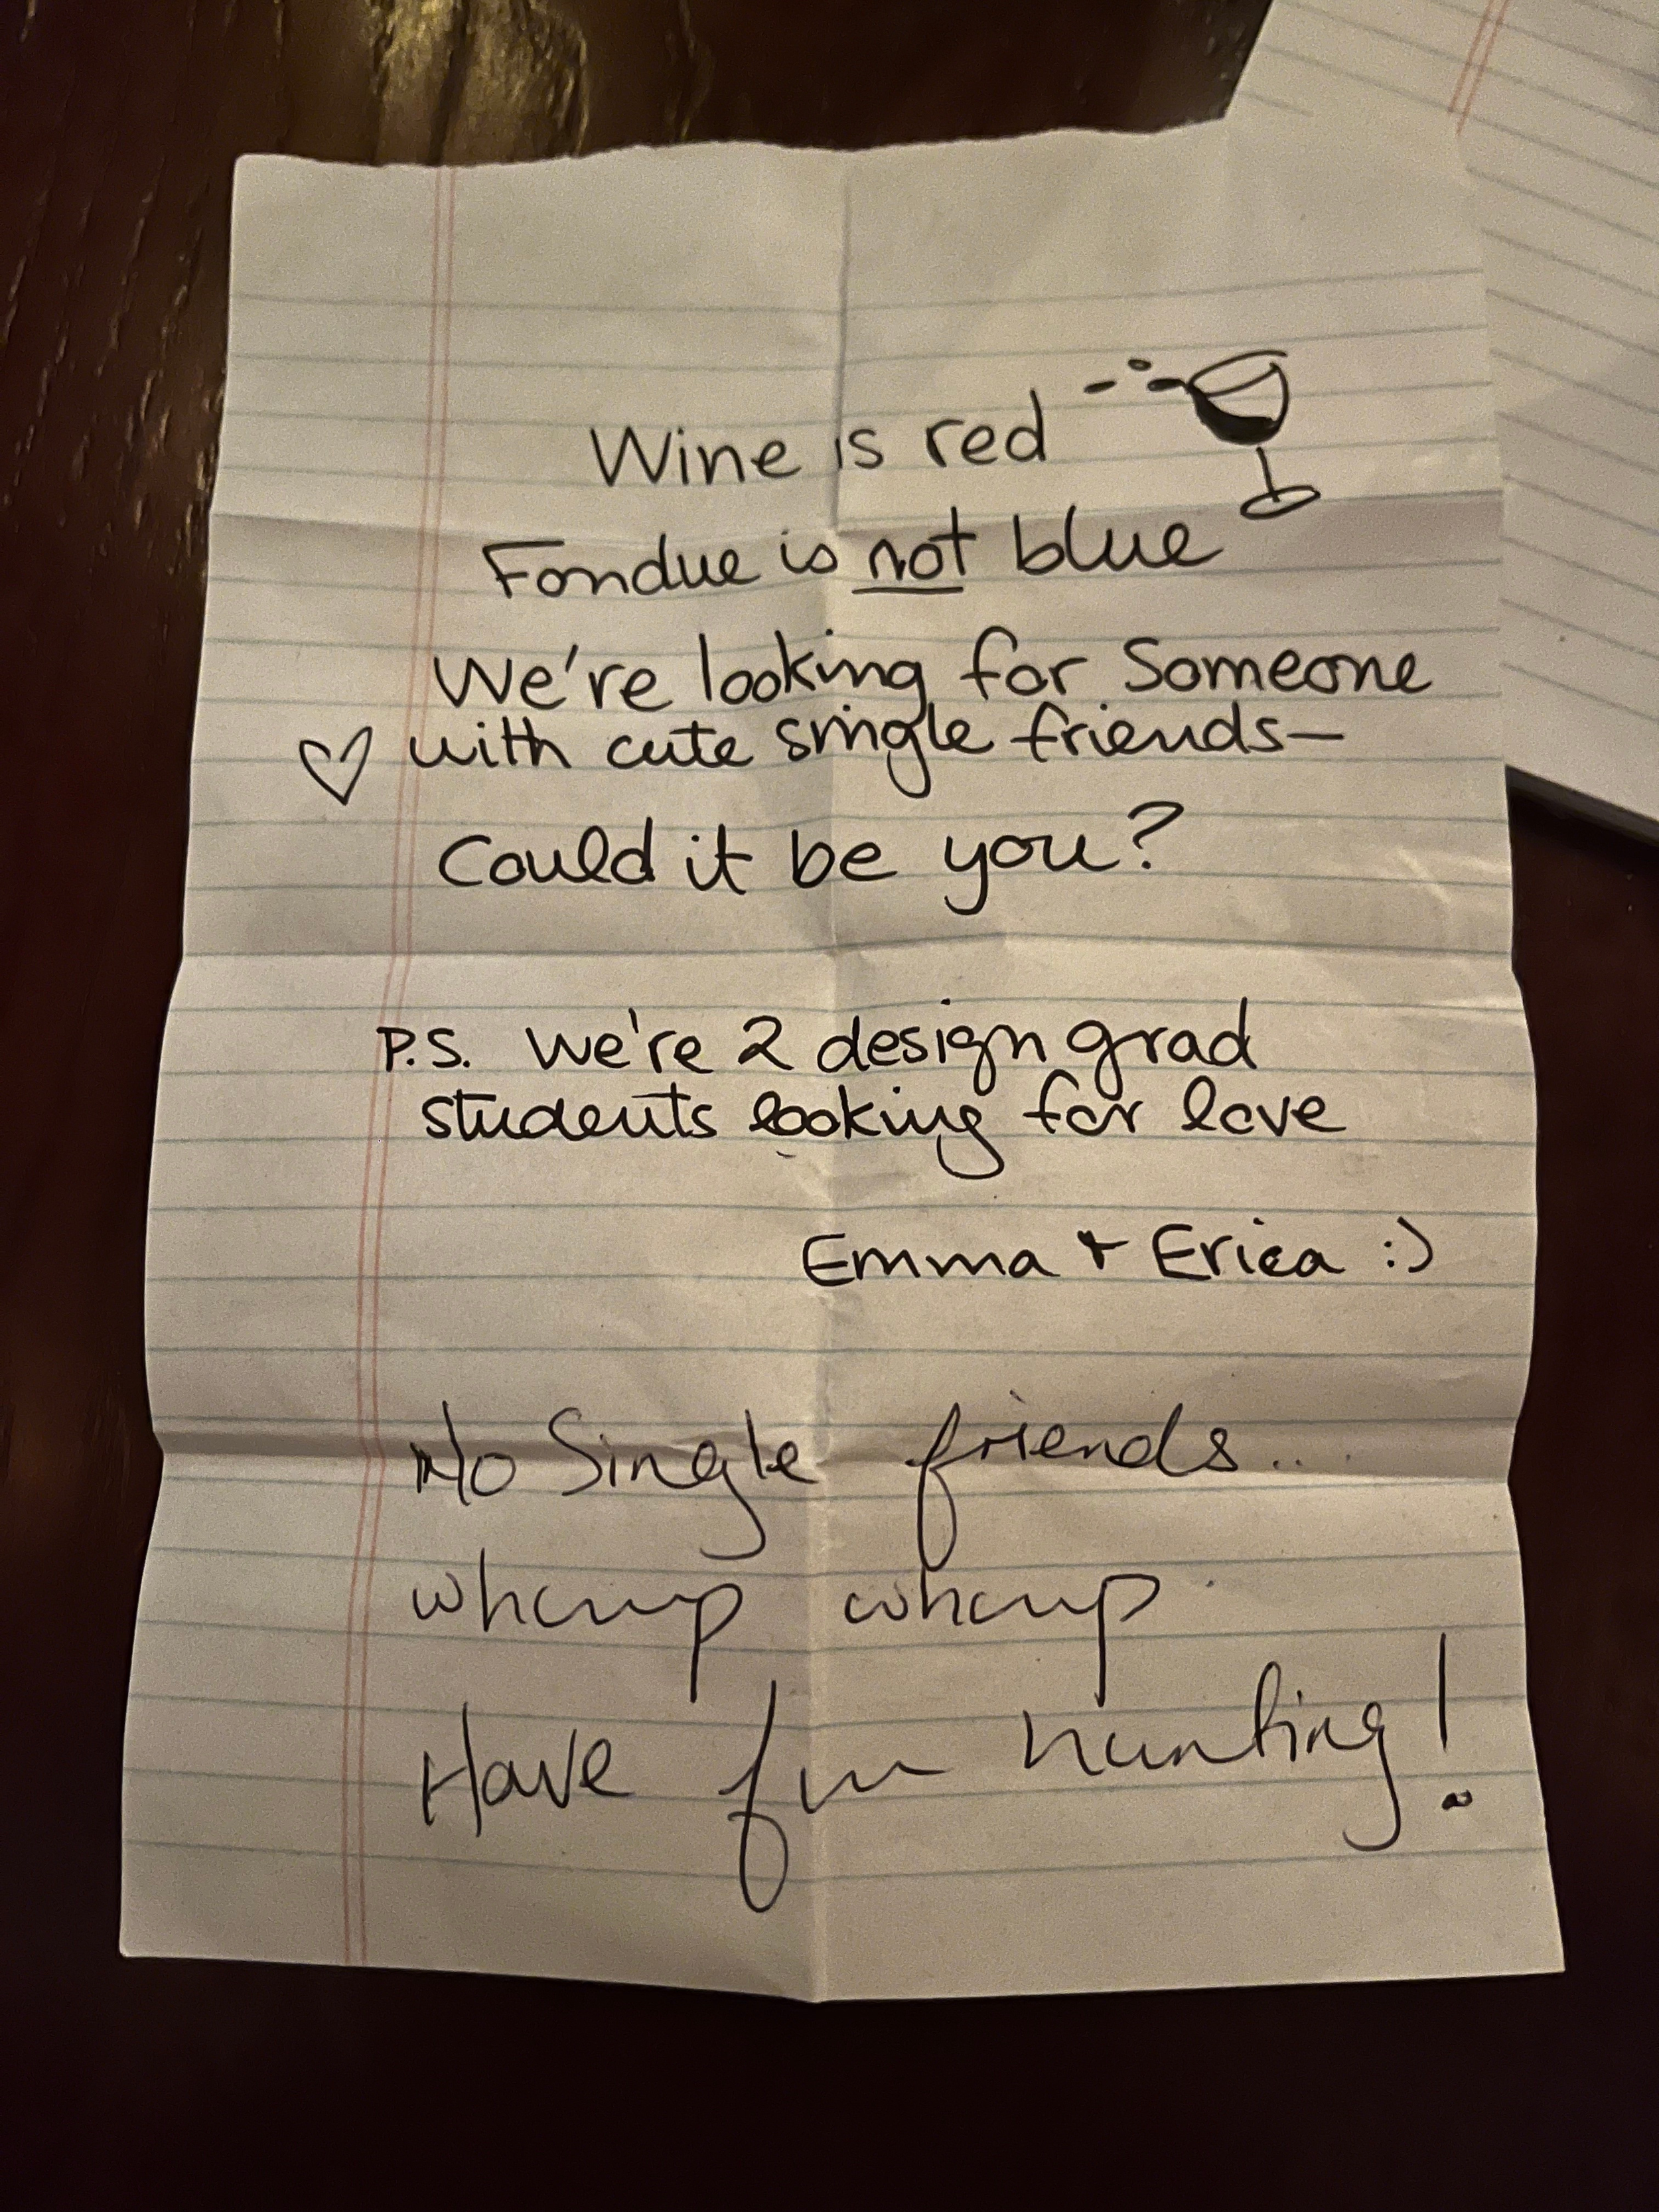 Wine is red
Fondue is not blue
We're looking for Someone
with cute single friends—
Could it be you?
P.S. We're 2 design grad
students looking for love
Emma + Erica :)
No Single friends...
whomp whomp
Have fun hunting!